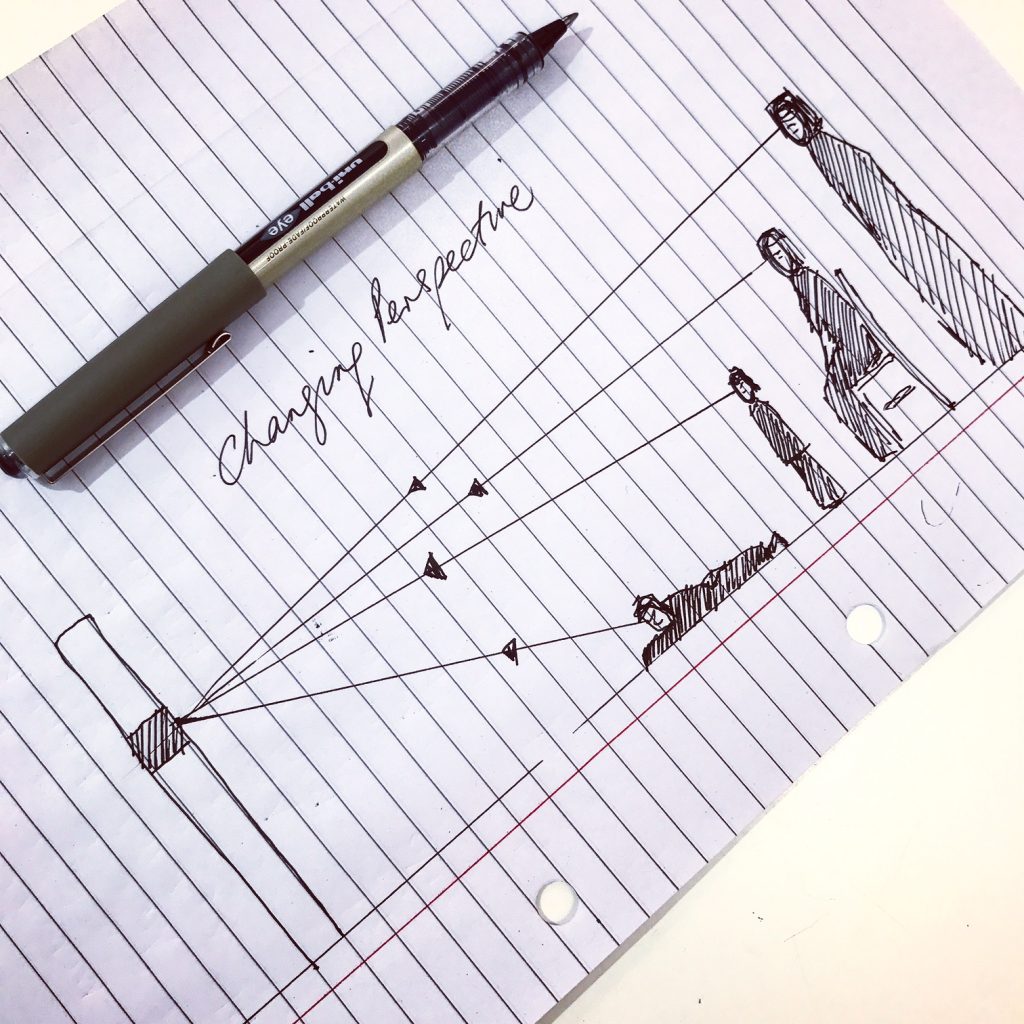 uni-ball eye
WATERPROOF/FADE-PROOF
Changing Perspective